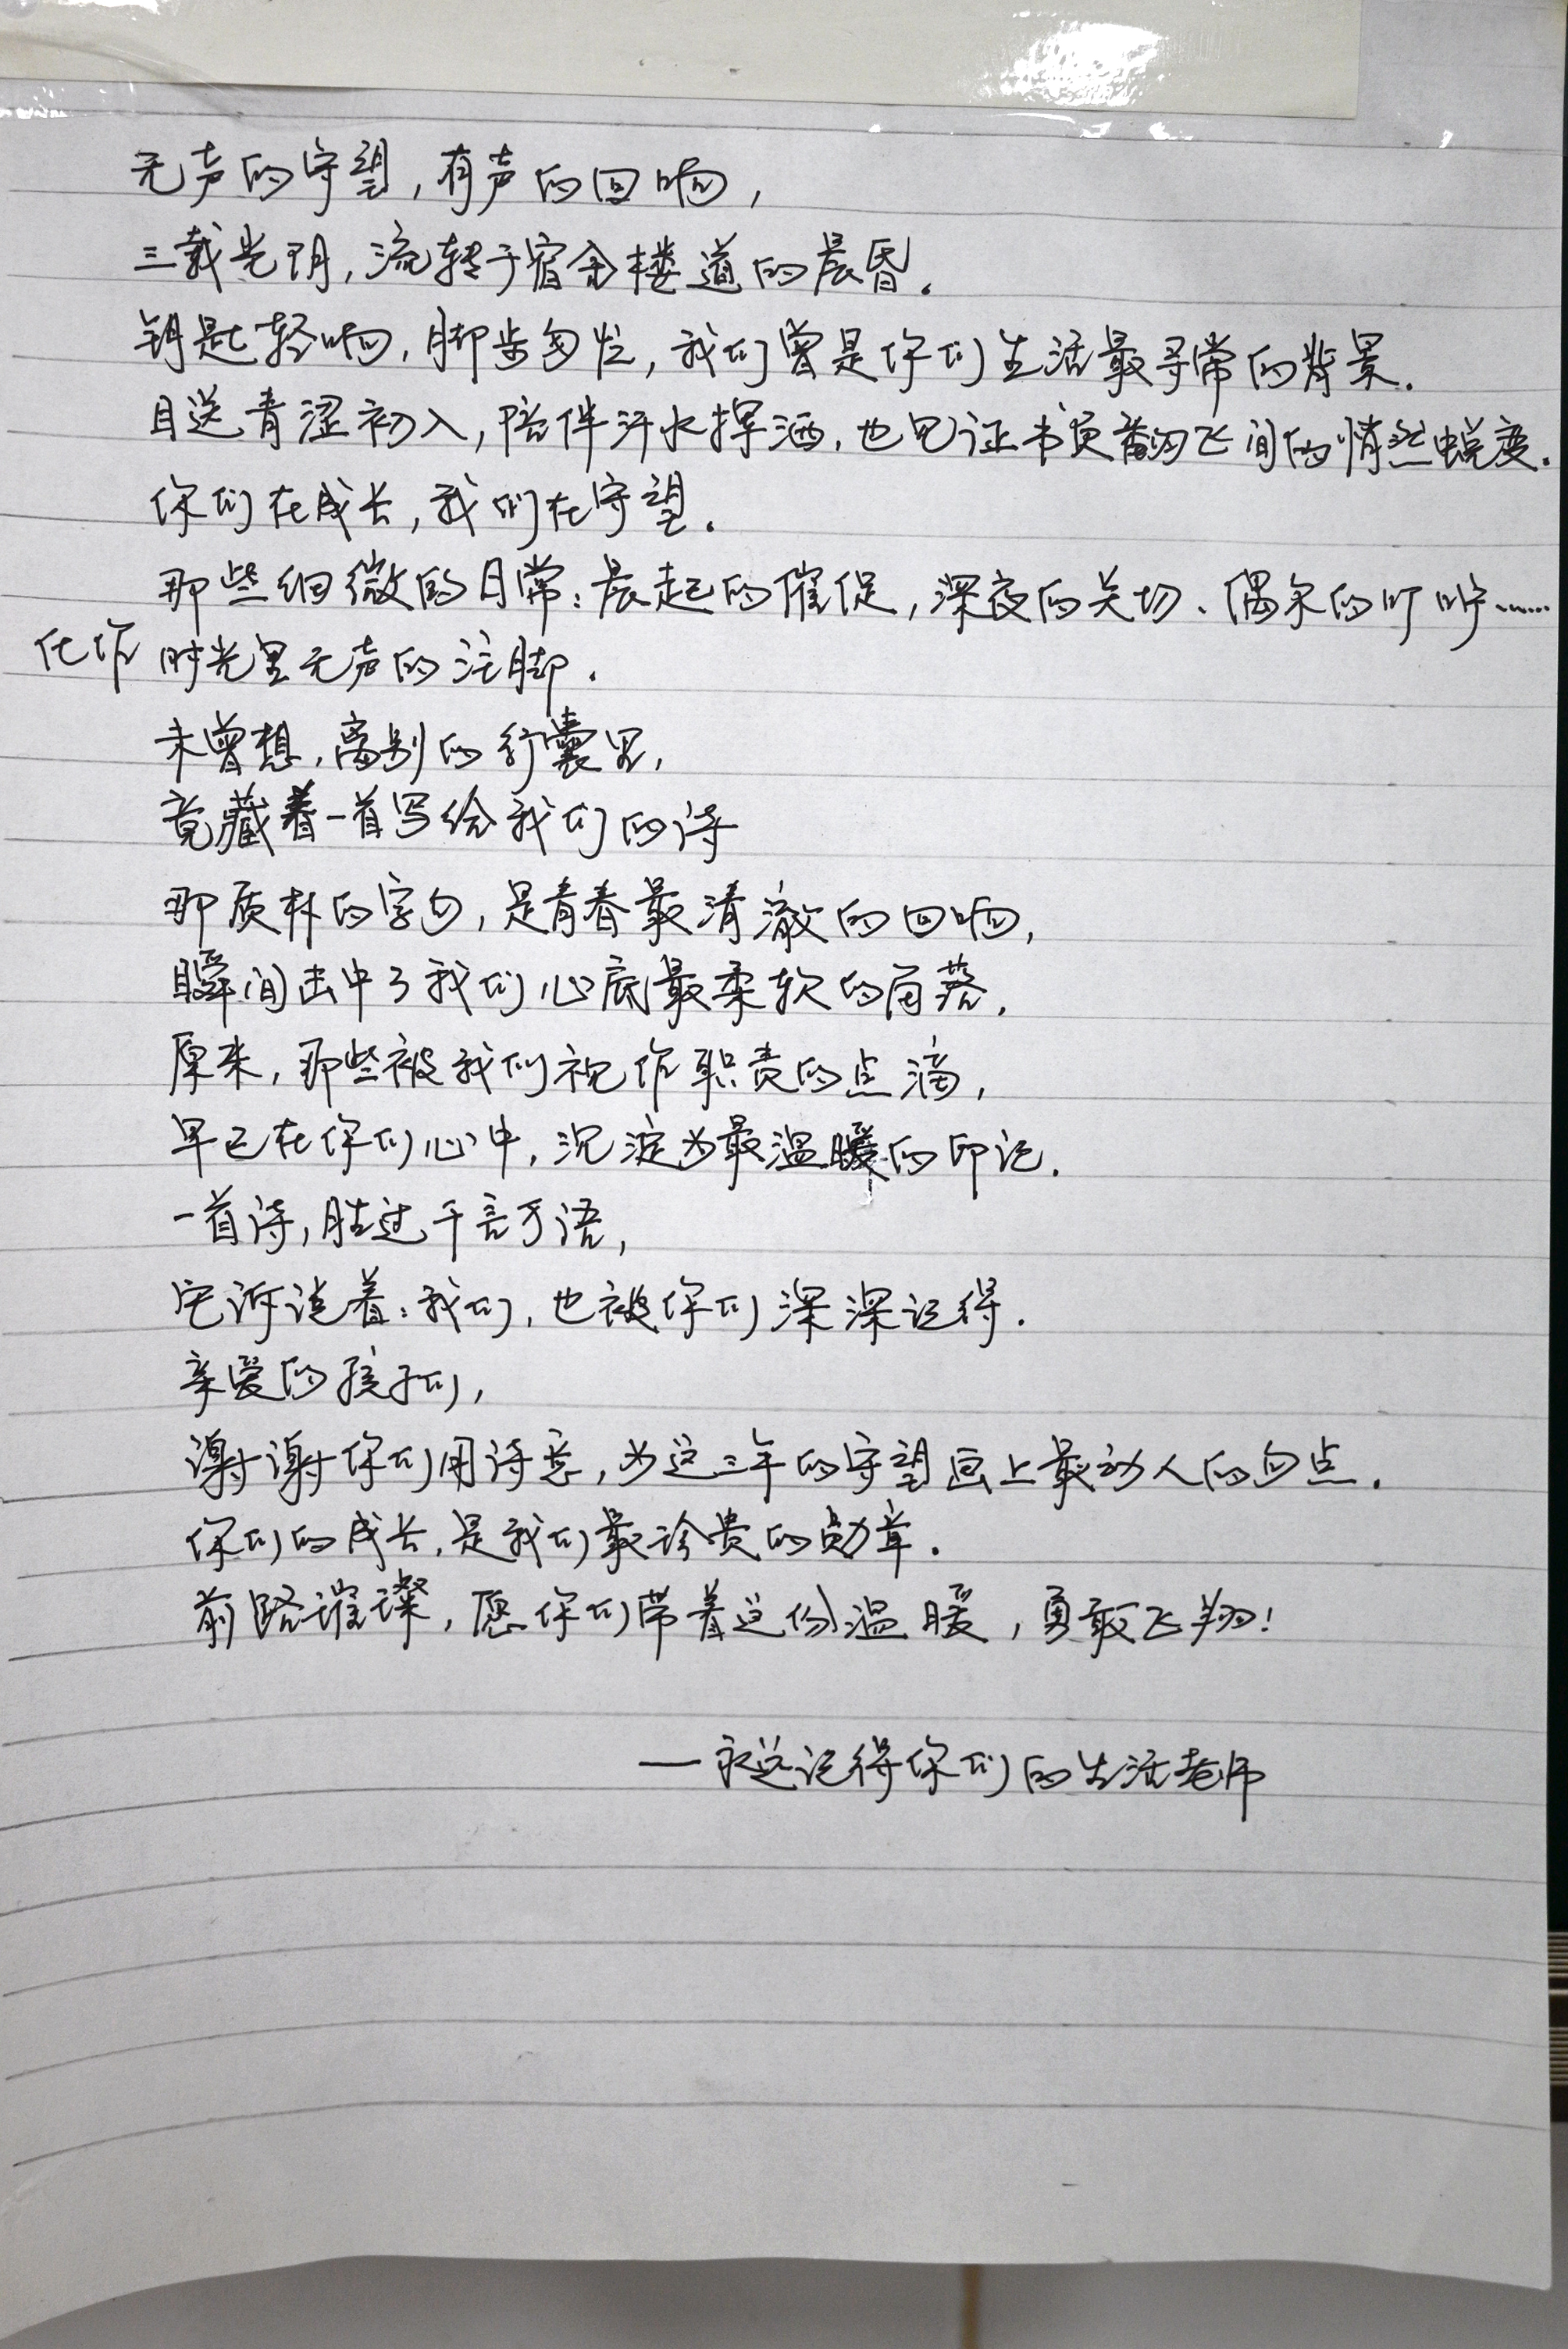 无声的守望，有声的回响，
三载光阴，流转于宿舍楼道的晨昏。
钥匙轻响，脚步匆忙，我们曾是你们生活最寻常的背景.
目送青涩初入，陪伴汗水挥洒，也见证书页翻飞间的悄然蜕变.
你们在成长，我们在守望.
那些细微的日常：晨起的催促，深夜的关切、偶尔的叮咛……
化作时光里无声的注脚.
未曾想，离别的行囊里，
竟藏着一首写给我们的诗
那质朴的字句，是青春最清澈的回响，
瞬间击中了我们心底最柔软的角落，
原来，那些被我们视作职责的点滴，
早已在你们心中，沉淀为最温暖的印记.
一首诗，胜过千言万语，
它诉说着：我们，也被你们深深记得.
亲爱的孩子们，
谢谢你们用诗意，为这三年的守望画上最动人的句点.
你们的成长，是我们最珍贵的勋章.
前路璀璨，愿你们带着这份温暖，勇敢飞翔！
——永远记得你们的生活老师